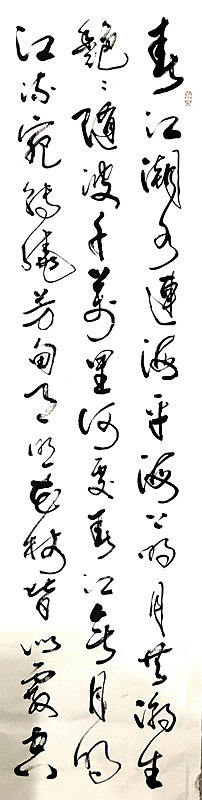 春江潮水連海平海上明月共潮生
艷〻隨波千萬里何處春江無月明
江流宛轉繞芳甸月照花林皆似霰空